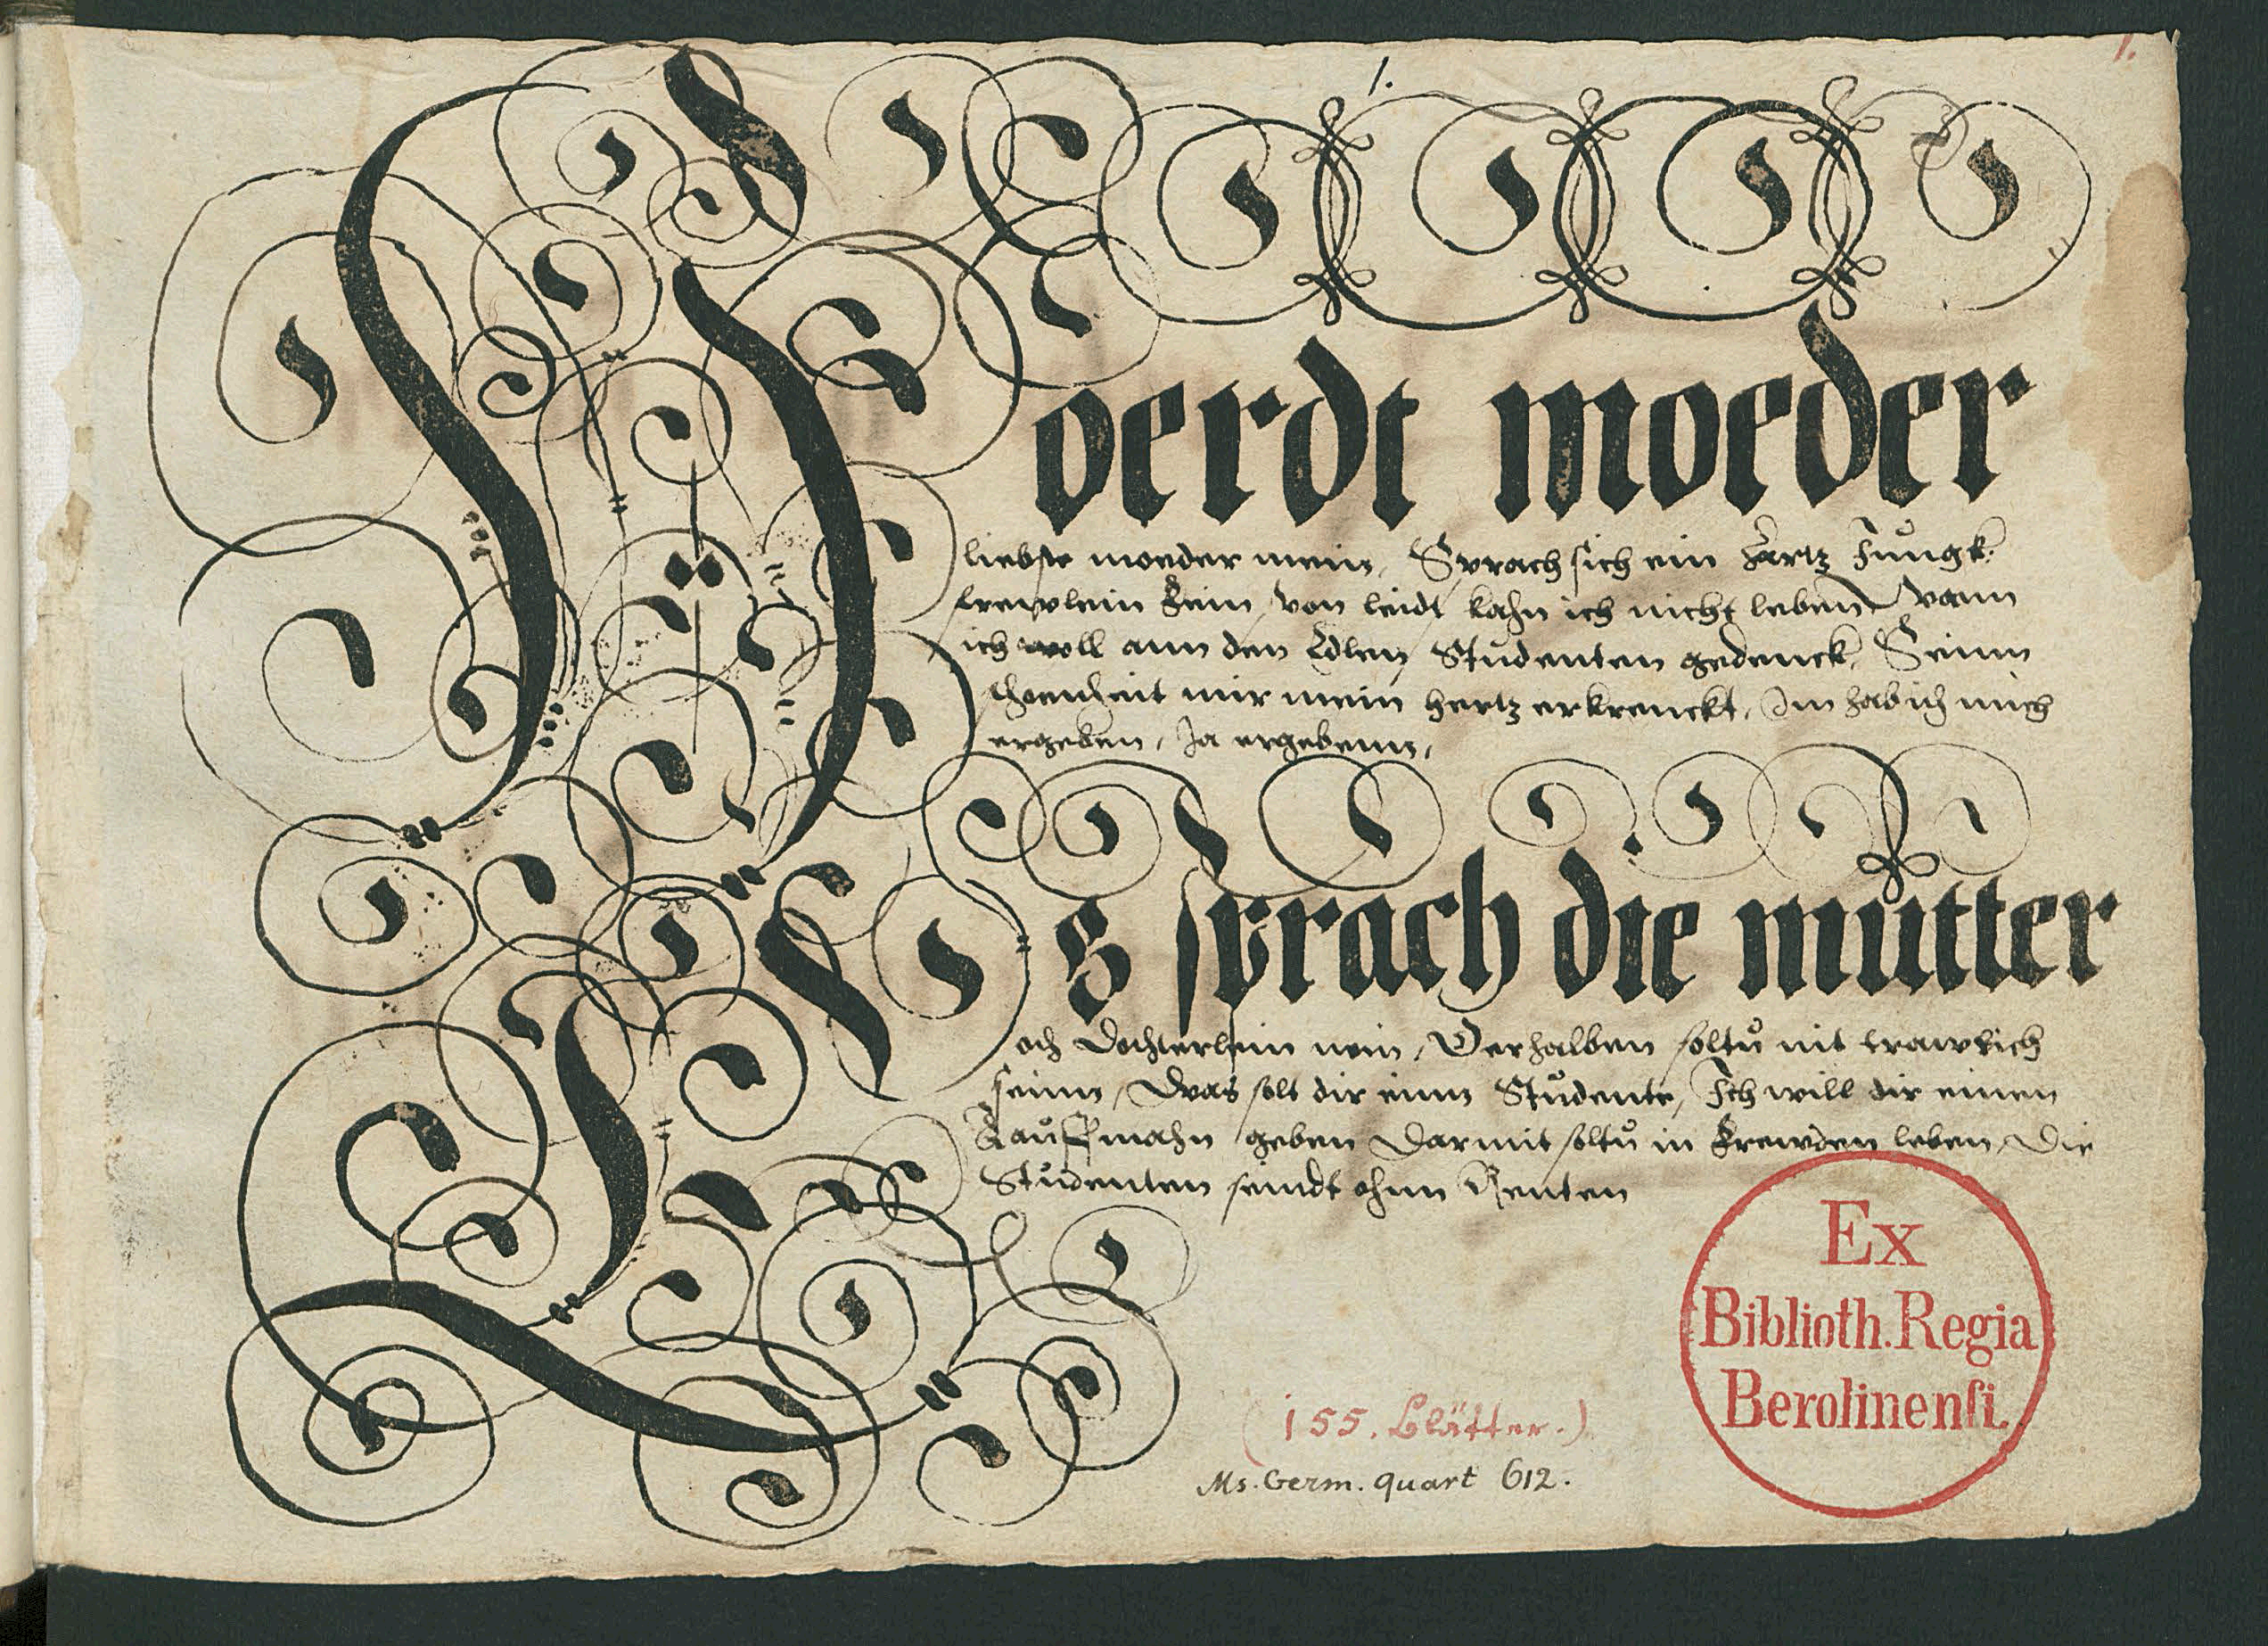 1.
1.
Hoerdt moeder
liebste moeder mein, Sprach sich ein Zartz Jůngk
frewlein fein, von leidt kahn ich nicht leben, wann
ich woll ann den Edlen Stůdenten gedenck, Seinn
schoenheit mir mein hertz erkrenckt, Im hab ich mich
ergeben, Ja ergebenn,
Es sprach die můtter
och Dochterlein nein, Derhalben soltů nit trawrich
seinn, Was solt dir einn Stůdente, Ich will dir einen
Kaůffmahn geben Darmit soltů in frewden leben, Die
Stůdenten seindt ohnn Renten
Ex
Biblioth. Regia
Berolinensi.
(155. Blätter.)
Ms. Germ. quart 612.